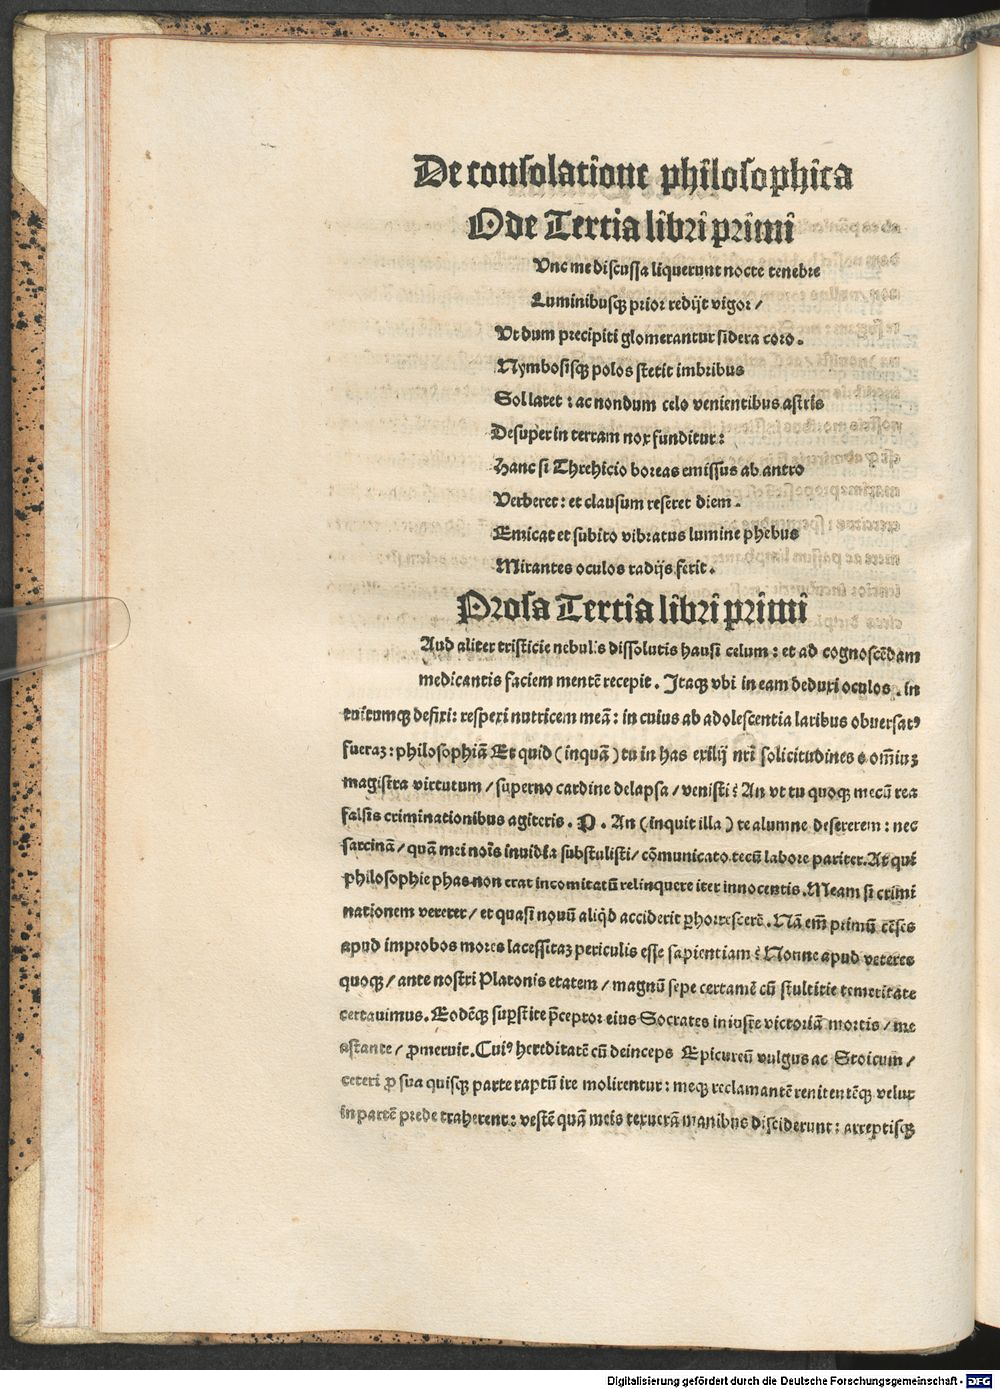 De consolatione philosophica
Ode Tertia libri primi
Vnc me discussa liquerunt nocte tenebre
Luminibusqꝫ prior redijt vigor /
Vt dum precipiti glomerantur sidera coro .
Nymbosisqꝫ polos stetit imbribus
Sol latet : ac nondum celo venientibus astris
Desuper in terram nox funditur :
Hanc si Threhicio boreas emissus ab antro
Verberet : et clausum reseret diem .
Emicat et subito vibratus lumine phebus
Mirantes oculos radijs ferit .
Prosa Tertia libri primi
Aud aliter tristicie nebulis dissolutis hausi celum : et ad cognoscēdam
medicantis faciem mentē recepit . Itaqꝫ vbi in eam deduxi oculos . in
tuitumqꝫ defixi : respexi nutricem meā : in cuius ab adolescentia laribus obuersatꝰ
fueraꝫ : philosophiā Et quid ( inquā ) tu in has exilij nr̄i solicitudines o om̄iuꝫ
magistra virtutum / superno cardine delapsa / venisti ? An vt tu quoqꝫ mecū rea
falsis criminationibus agiteris . P . An ( inquit illa ) te alumne desererem : nec
sarcinā / quā mei noīs inuidia substulisti / cōmunicato tecū labore pariter. At qui
philosophie phas non erat incomitatū relinquere iter innocentis . Meam si crimi
nationem vererer / et quasi nouū aliqd acciderit ꝑhorrescerē . Nā em̄ primū cēses
apud improbos mores lacessitaꝫ periculis esse sapientiam ? Nonne apud veteres
quoqꝫ / ante nostri Platonis etatem / magnū sepe certamē cū stultitie temeritate
certauimus . Eodēqꝫ suꝑstite p̄ceptor eius Socrates iniuste victoriā mortis / me
astante / ꝓmeruit . Cuiꝰ hereditatē cū deinceps Epicureū vulgus ac Stoicum /
ceteri ꝓ sua quisqꝫ parte raptū ire molirentur : meqꝫ reclamantē renitentēqꝫ velut
in partē prede traherent : vestē quā meis texuerā manibus disciderunt : arreptisqꝫ
Digitalisierung gefördert durch die Deutsche Forschungsgemeinschaft - DFG